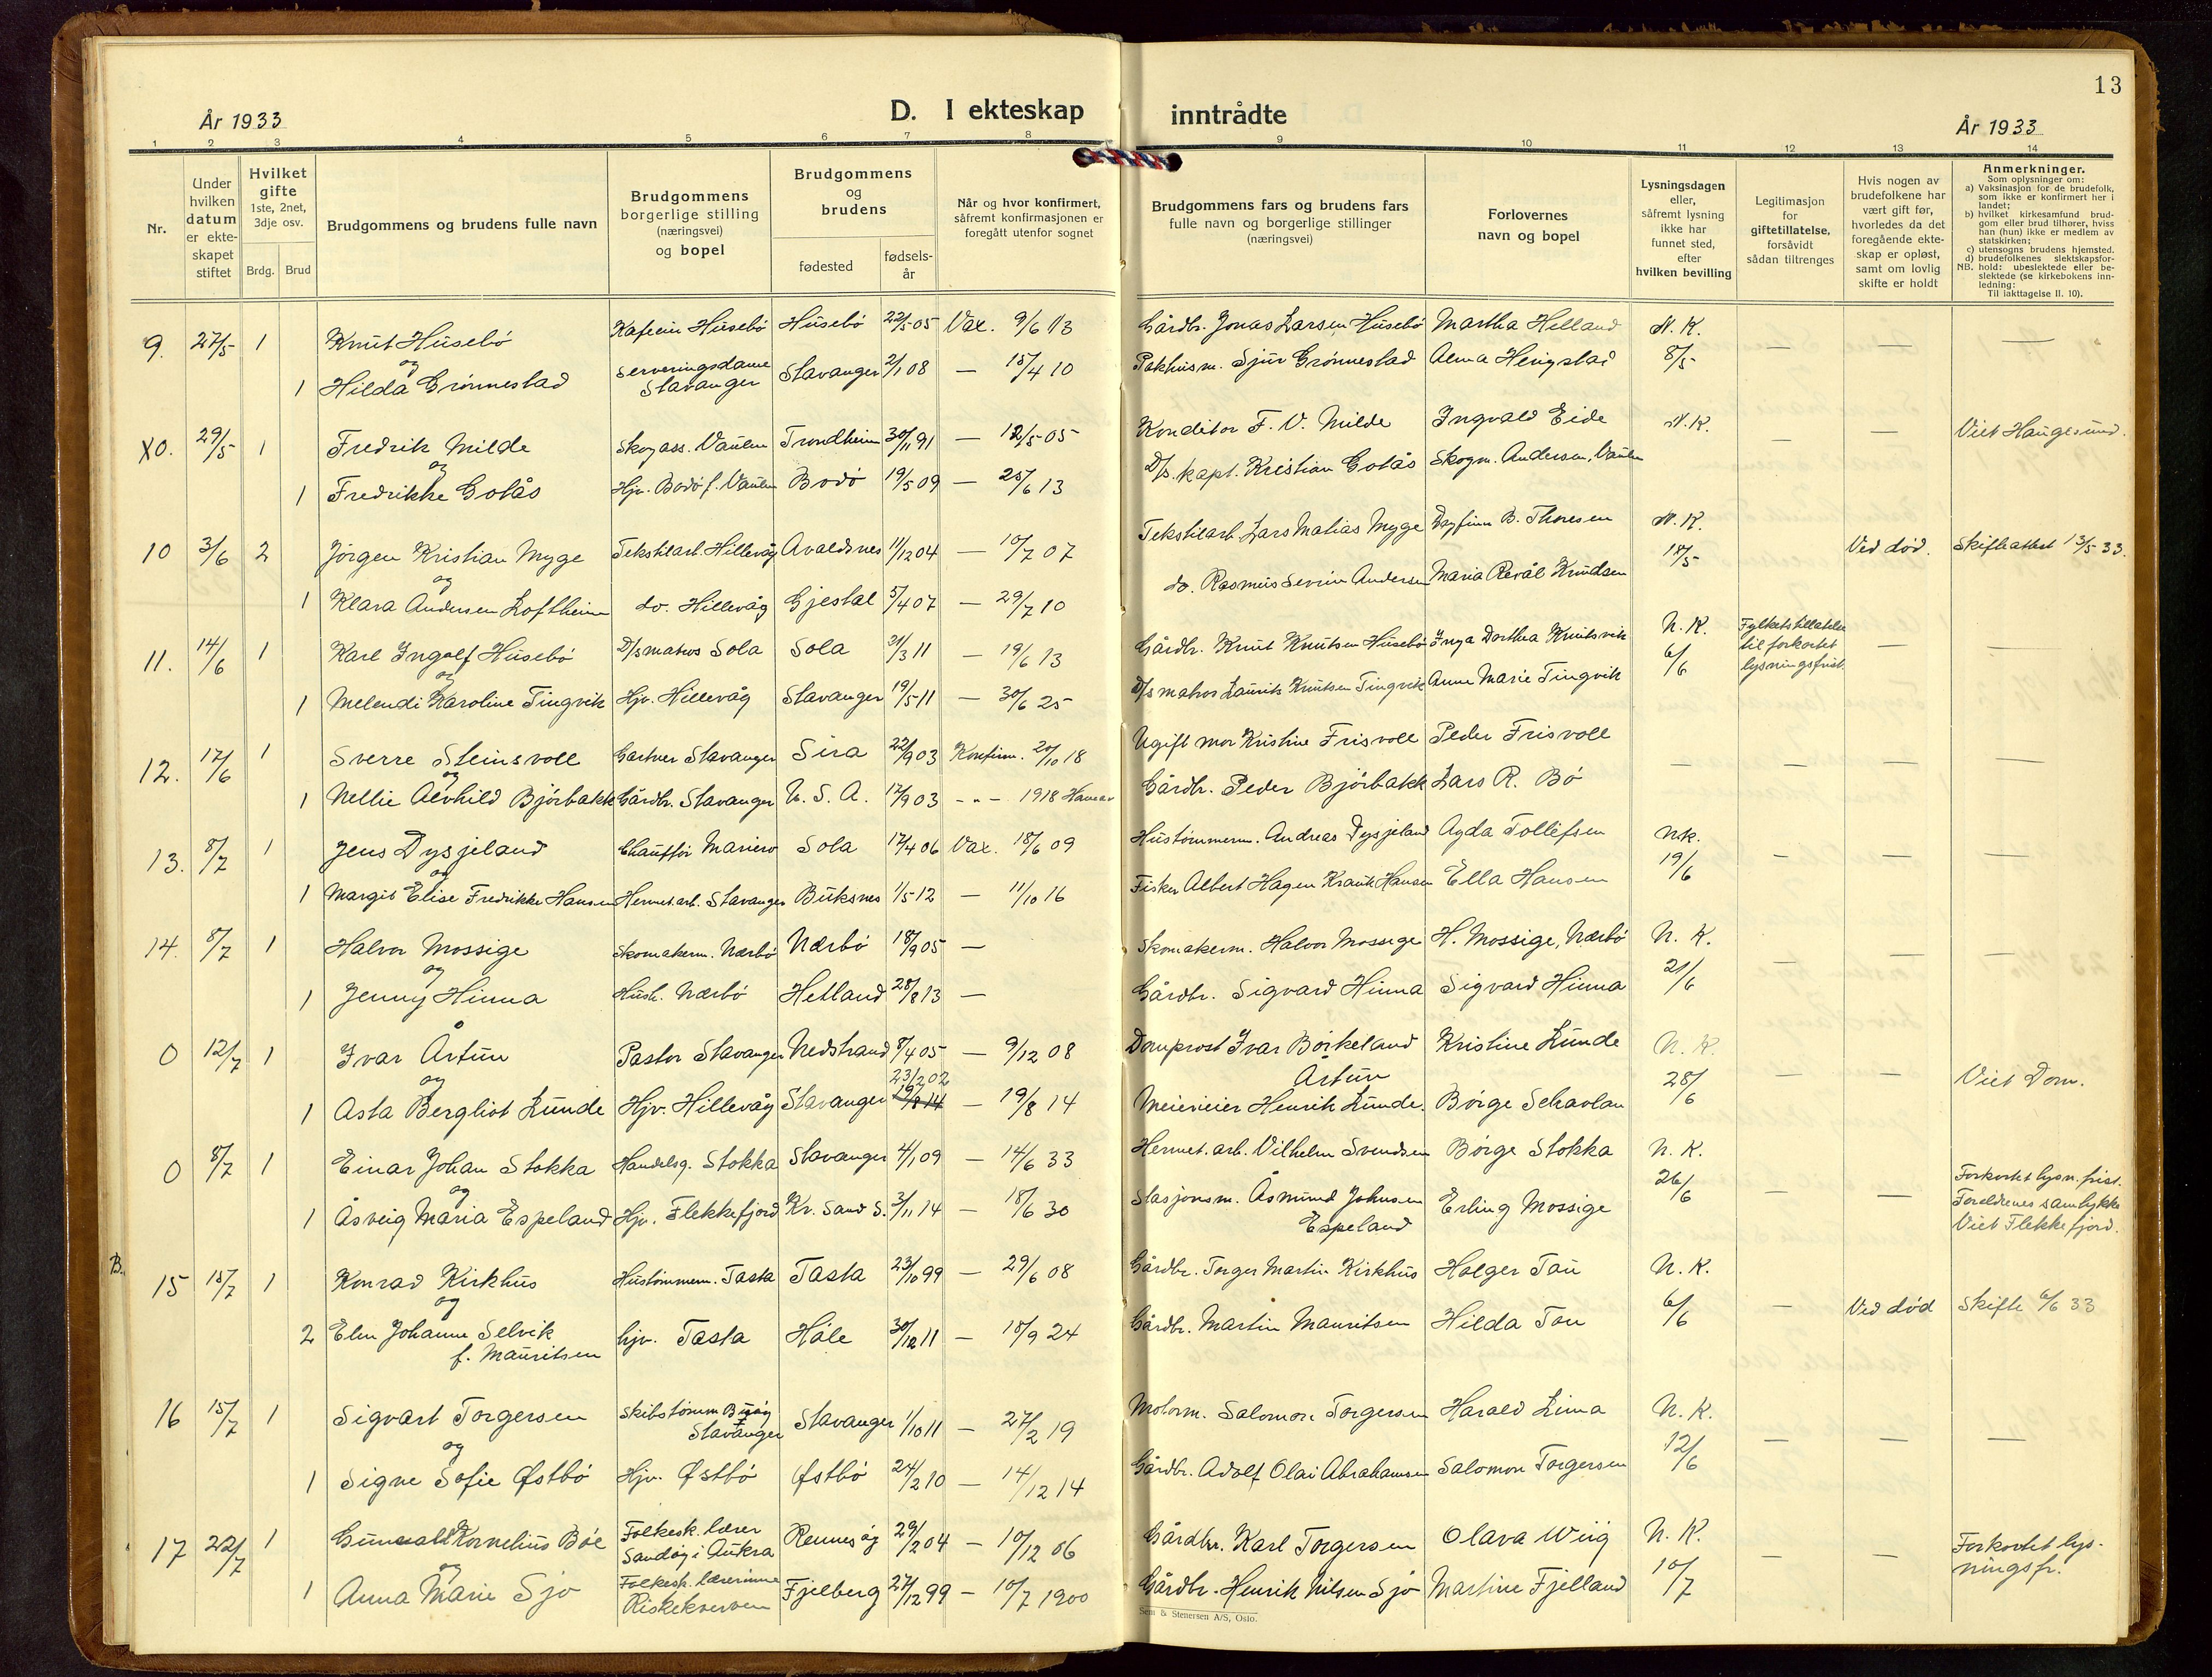 13
År 1933
D. I ekteskap inntrådte
År 1933
1 2 3 4 5 6 7 8 9 10 11 12 13 14
Nr.
Under hvilken datum er ekte-skapet stiftet
Hvilket gifte 1ste, 2net, 3dje osv.
Brdg. Brud
Brudgommens og brudens fulle navn
Brudgommens borgerlige stilling (næringsvei) og bopel
Brudgommens og brudens
fødested
fødsels-år
Når og hvor konfirmert, såfremt konfirmasjonen er foregått utenfor sognet
Brudgommens fars og brudens fars fulle navn og borgerlige stillinger (næringsvei)
Forlovernes navn og bopel
Lysningsdagen eller, såfremt lysning ikke har funnet sted, efter hvilken bevilling
Legitimasjon for giftetillatelse, forsåvidt sådan tiltrenges
Hvis nogen av brudefolkene har vært gift før, hvorledes da det foregående ekte-skap er opløst, samt om lovlig skifte er holdt
Anmerkninger.
Som oplysninger om:
a) Vaksinasjon for de brudefolk, som ikke er konfirmert her i landet;
b) hvilket kirkesamfund brud-gom eller brud tilhører, hviss han (hun) ikke er medlem av statskirken;
c) utensogns brudens hjemsted.
d) brudefolkenes slektskapsfor-
NB. hold: ubeslektede eller be-slektede (se kirkebokens inn-ledning:
Til iakttagelse II. 10).
9. 27/5 1 Knut Húsebö Húsebö 22/5 05 Vax. 9/6 13 Gårdbr. Jonas Larsen Húsebö Martha Helland N. K.
og
1 Hilda Grönnestad Serveringsdame Stavanger Stavanger 2/1 08 — 15/4 10 Pakhusm. Sjur Grönnestad 8/5 — — —
X0. 29/5 1 Fredrik Milde Skogass. Vaulen Trondheim 30/11 91 — 12/5 05 Konditor F. V. Milde Ingvald Eide N. K. — — Viet Haugesund.
og
1 Fredrikke Gotås Hjv. Bodö f. Vaulen Bodö 19/5 09 — 25/6 13 D/s. kapt. Kristian Gotås Skogm. Andersen, Vaulen
10 3/6 2 Jörgen Kristian Myge Tekstilarb. Hillevåg Avaldsnes 11/12 04 — 10/7 07 Tekstilarb. Lars Matias Myge Dagfinn B. Thoresen N. K. Ved död. Skifteattest 13/5 33.
og
1 Klara Andersen Loftheim do. Hillevåg Gjestal 5/4 07 — 29/7 10 do. Rasmus Severin Andersen Maria Revål Knudsen 18/5
11. 14/6 1 Karl Ingolf Húsebö D/s matros Sola Sola 21/3 11 — 19/6 13 Gårdbr. Knut Knutsen Húsebö Inga Dorthea Knutsvik N. K. Fylketstillatelse til forkortet lysningsfrist — —
og
1 Melendi Karoline Tingvik Hjv. Hillevåg Stavanger 19/5 11 — 30/6 25 D/s matros Lauritz Knutsen Tingvik Anne Marie Tingvik 6/6
12. 17/6 1 Sverre Steinsvoll Gartner Stavanger Sira 22/9 03 Konfirm. 20/10 18 Ugift mor Kristine Frisvoll Peder Frisvoll — — — —
og
1 Nellie Alvhild Björbakk Gårdbr. Stavanger U. S. A. 17/9 03 - " - 1918 Gårdbr. Peder Björbakk Lars R. Bö
13. 8/7 1 Jens Dysjeland Chaufför Mariero Sola 17/4 06 Vax. 18/6 09 Hustömmerm. Andreas Dysjeland Agda Tollefsen N.K.
og
1 Margit Elise Fredrikke Hansen Hermet.arb. Stavanger Buksnes 1/5 12 — 11/10 16 Fisker Albert Hagen Krantz Hansen Ella Hansen 19/6 — — —
14. 8/7 1 Halvor Mossige Skomakerm. Nærbö Nærbö 18/9 05 — Skomakerm. Halvor Mossige H. Mossige, Nærbö N. K. — — —
og
1 Jenny Hinna Hush. Nærbö Hetland 28/8 13 — Gårdbr. Sigvard Hinna Sigvard Hinna 21/6
0 12/7 1 Ivar Årtun Pastor Stavanger Nedstrand 8/4 05 — 9/12 08 Domprost Ivar Börkeland Årtun Kristine Lunde N. K. — — Viet Dom.
og
1 Asta Bergliot Lunde Hjv. Hillevåg Stavanger 23/2 02 — 19/8 14 Meierieier Henrik Lunde. Börge Schavlan 28/6
0 8/7 1 Einar Johan Stokka Handelsg. Stokka Stavanger 4/1 09 — 14/6 33 Hermet.arb. Vilhelm Svendsen Börge Stokka N. K. Forkortet lysn. frist.
og
1 Åsveig Maria Espeland Hjv. Flekkefjord Kr. Sand S. 3/11 14 — 18/6 30 Stasjonsm. Åsmund Johnsen Espeland Erling Mossige 26/6 — — Foreldrenes samtykke
Viet Flekkefjord.
B.
15 15/7 1 Konrad Kirkhus Hustömmerm. Tasta Tasta 23/10 99 — 29/6 08 Gårdbr. Torger Martin Kirkhus Holger Tau N. K.
og
2 Elen Johanne Selvik f. Mauritsen hjv. Tasta Höle 30/12 11 — 18/9 24 Gårdbr. Martin Mauritsen Hilda Tau 6/6 — Ved död Skifte 6/6 33
16 15/7 1 Sigvart Torgersen Skibstömm Buöy Stavanger Stavanger 1/10 11 — 27/2 19 Motorm. Salomon Torgersen Harald Lima N. K.
og
1 Signe Sofie Østbö Hjv. Østbö Østbö 24/2 10 — 14/12 14 Gårdbr. Adolf Olai Abrahamsen Salomon Torgersen 12/6 — — —
17 22/7 1 Gunvald Kornelius Böe Folkesk. lærer Sandöy i Aukra Rennesöy 29/2 04 — 10/12 06 Gårdbr. Karl Torgersen Olava Wiig N. K. — — Forkortet lys-ningsfr.
og
1 Anna Marie Sjo Folkesk. lærerinne Riskekverven Fjelberg 27/12 99 — 10/7 1900 Gårdbr. Henrik Nilsen Sjo Martine Fjelland 10/7
Sem & Stenersen A/S, Oslo.